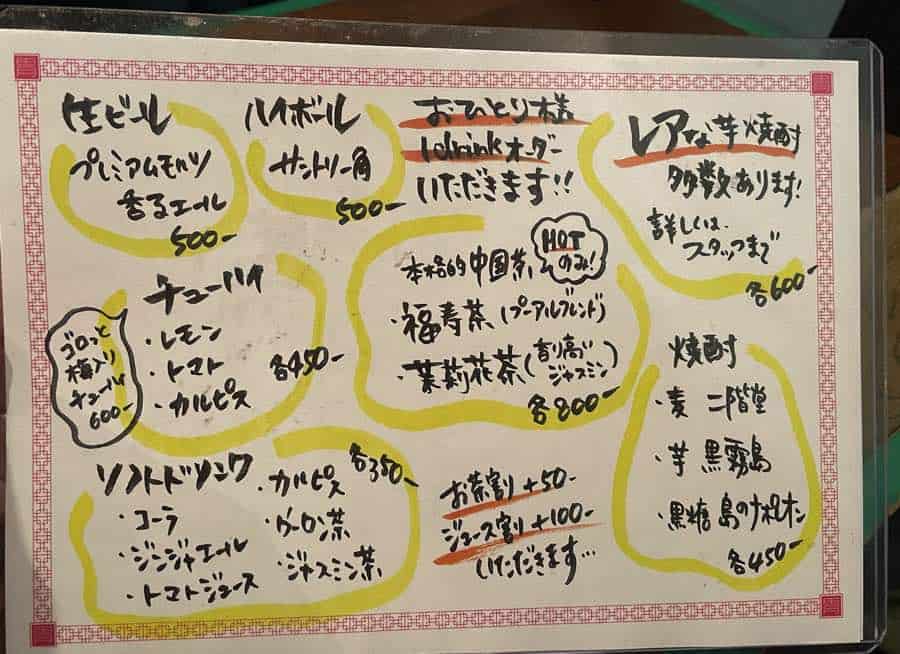 生ビール
プレミアムモルツ
香るエール
500-
ハイボール
サントリー角
500-
おひとり様
1drinkオーダー
いただきます!!
レアな芋焼酎
多数あります!
詳しくは
スタッフまで
各600-
チューハイ
・レモン
・トマト
・カルピス
各450-
ゴロっと
梅入り
チューハイ
600-
本格的中国茶
HOT
のみ!
・福寿茶(プーアルブレンド)
・茉莉花茶(香り高い
ジャスミン)
各800-
焼酎
・麦 二階堂
・芋 黒霧島
・黒糖 島のナポレオン
各450-
ソフトドリンク
・コーラ
・ジンジャエール
・トマトジュース
・カルピス
・ウーロン茶
・ジャスミン茶
各350-
お茶割+50-
ジュース割+100-
いただきます…